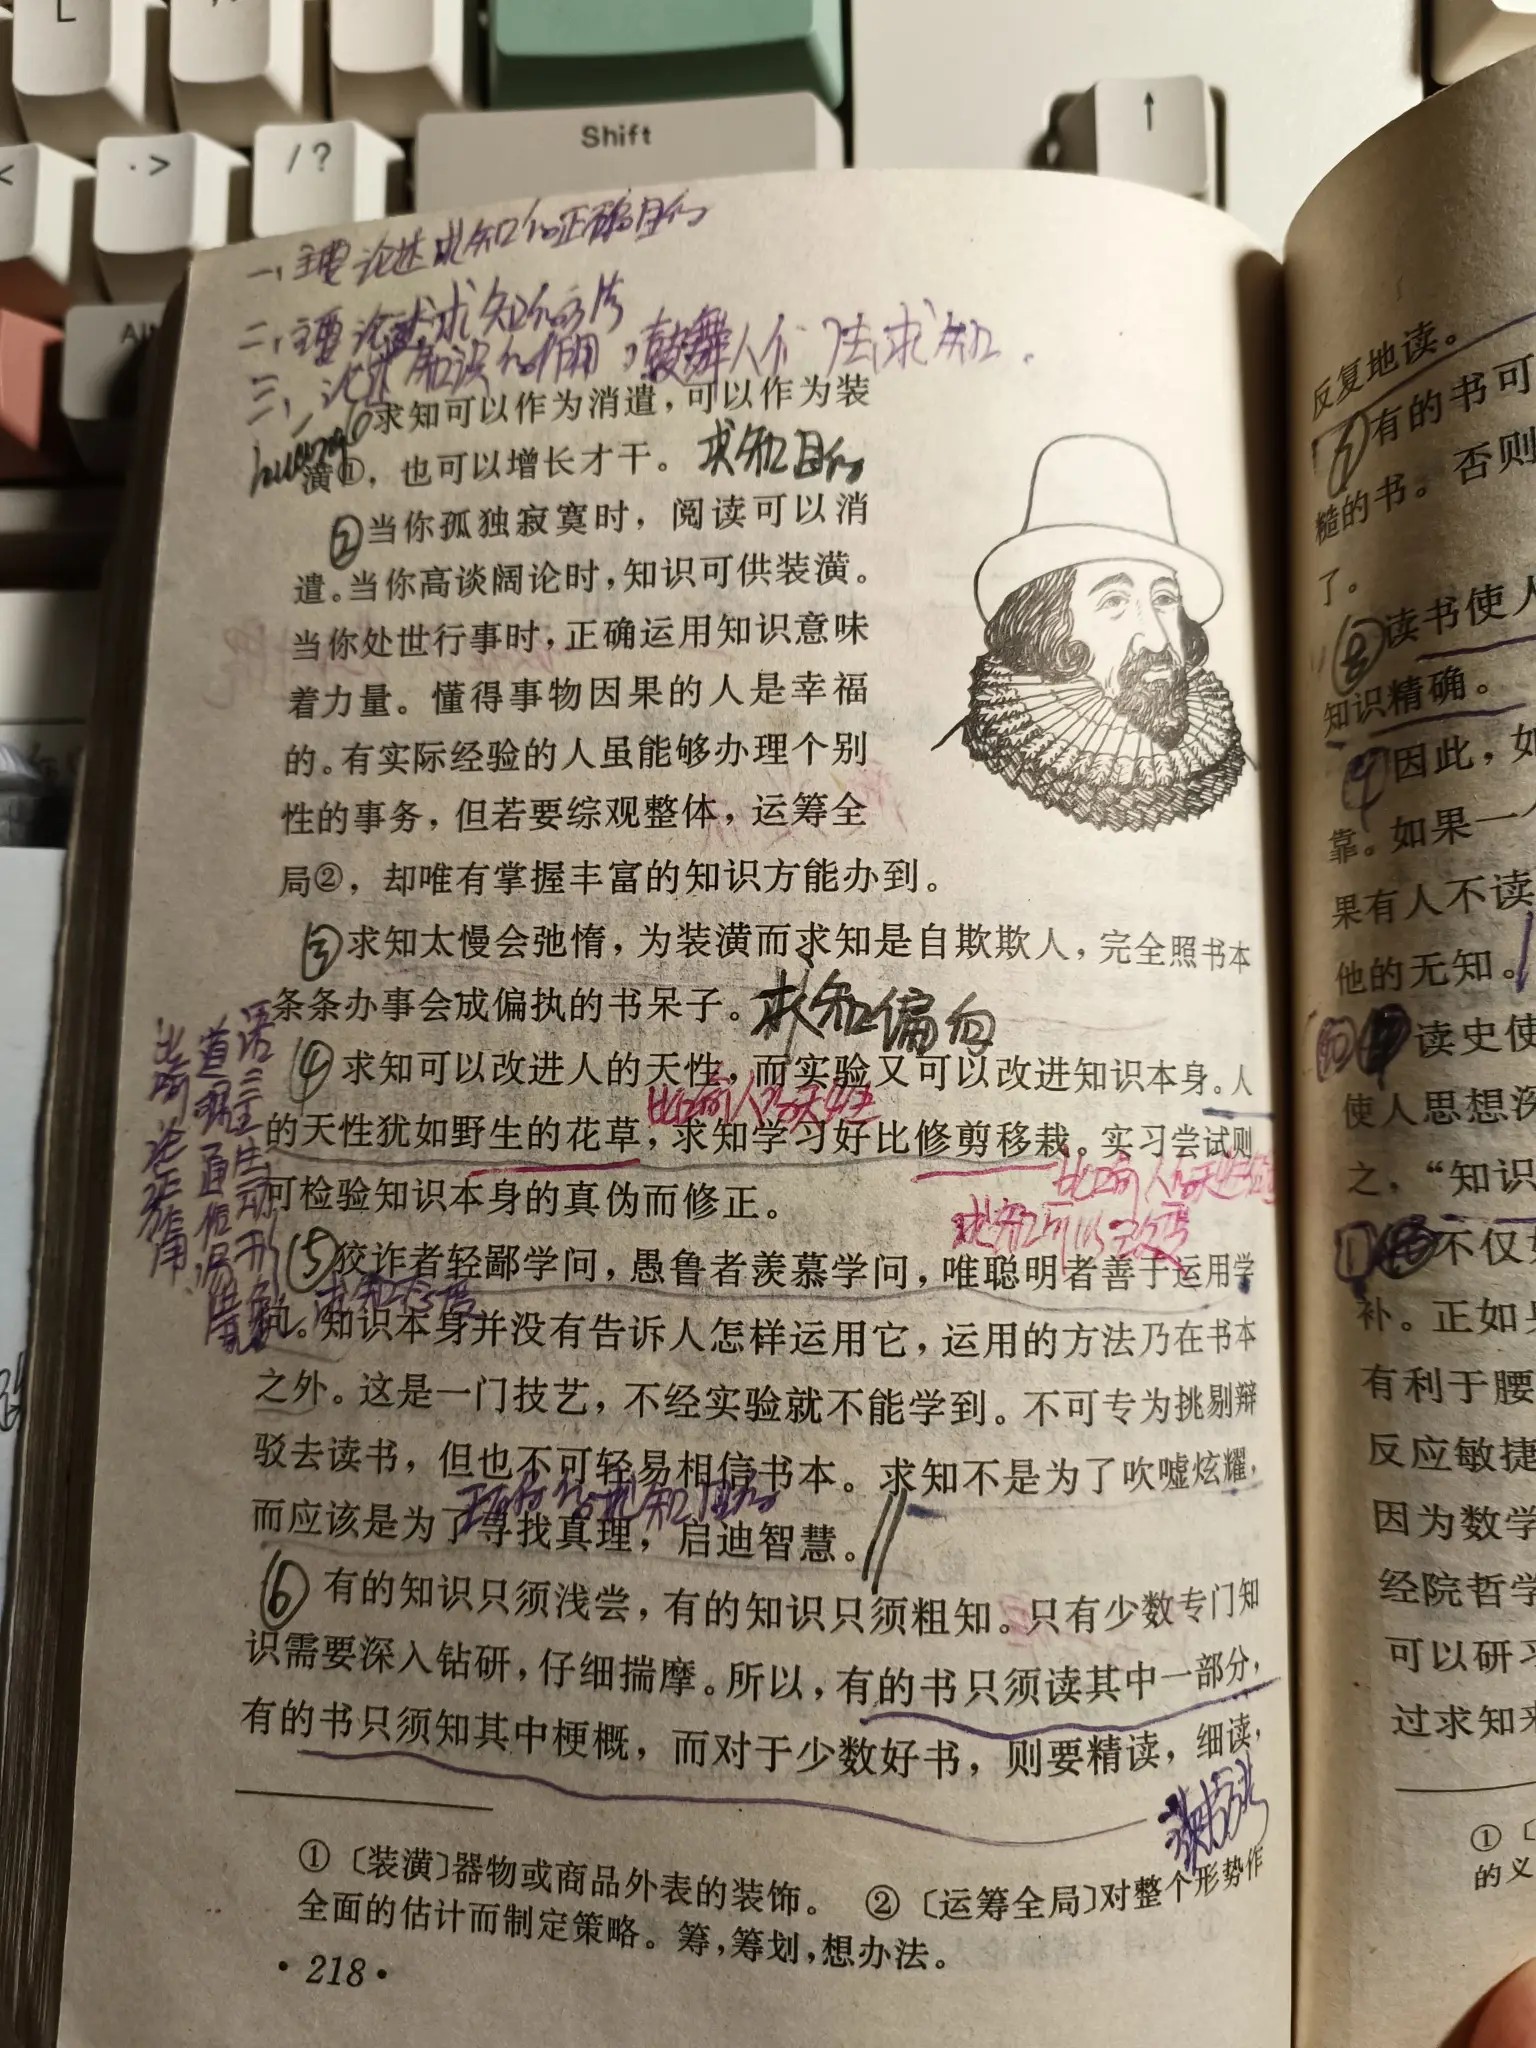 L
Shift
↑
<
. >
/ ?
Al
一、主要论述求知的正确目的
二、主要论述求知的方法
三、论述知识的作用，鼓舞人们去求知.
huang
①求知可以作为消遣，可以作为装
潢①，也可以增长才干。 求知目的
②当你孤独寂寞时，阅读可以消
遣。当你高谈阔论时，知识可供装潢。
当你处世行事时，正确运用知识意味
着力量。懂得事物因果的人是幸福
的。有实际经验的人虽能够办理个别
性的事务，但若要综观整体，运筹全
局②，却唯有掌握丰富的知识方能办到。
③求知太慢会弛惰，为装潢而求知是自欺欺人，完全照书本
条条办事会成偏执的书呆子。 求知偏向
④求知可以改进人的天性，而实验又可以改进知识本身。人
比喻人的天性
的天性犹如野生的花草，求知学习好比修剪移栽。实习尝试则
比喻人的天性
可检验知识本身的真伪而修正。
求知可以改变
⑤狡诈者轻鄙学问，愚鲁者羡慕学问，唯聪明者善于运用学
求知态度
问。知识本身并没有告诉人怎样运用它，运用的方法乃在书本
之外。这是一门技艺，不经实验就不能学到。不可专为挑剔辩
驳去读书，但也不可轻易相信书本。求知不是为了吹嘘炫耀，
正确的求知目的
而应该是为了寻找真理，启迪智慧。
⑥有的知识只须浅尝，有的知识只须粗知。只有少数专门知
识需要深入钻研，仔细揣摩。所以，有的书只须读其中一部分，
有的书只须知其中梗概，而对于少数好书，则要精读，细读，
读书方法
①〔装潢〕器物或商品外表的装饰。 ②〔运筹全局〕对整个形势作
全面的估计而制定策略。筹，筹划，想办法。
·218·
语言生动形
道理通俗易
比喻论证作用
反复地读。
⑦有的书可
糙的书。否则
了。
⑧读书使人
知识精确。
⑨因此，如
靠。如果一个
果有人不读
他的无知。
⑩读史使
使人思想深
之，“知识
不仅
补。正如
有利于腰
反应敏捷
因为数学
经院哲学
可以研习
过求知来
①〔
的义